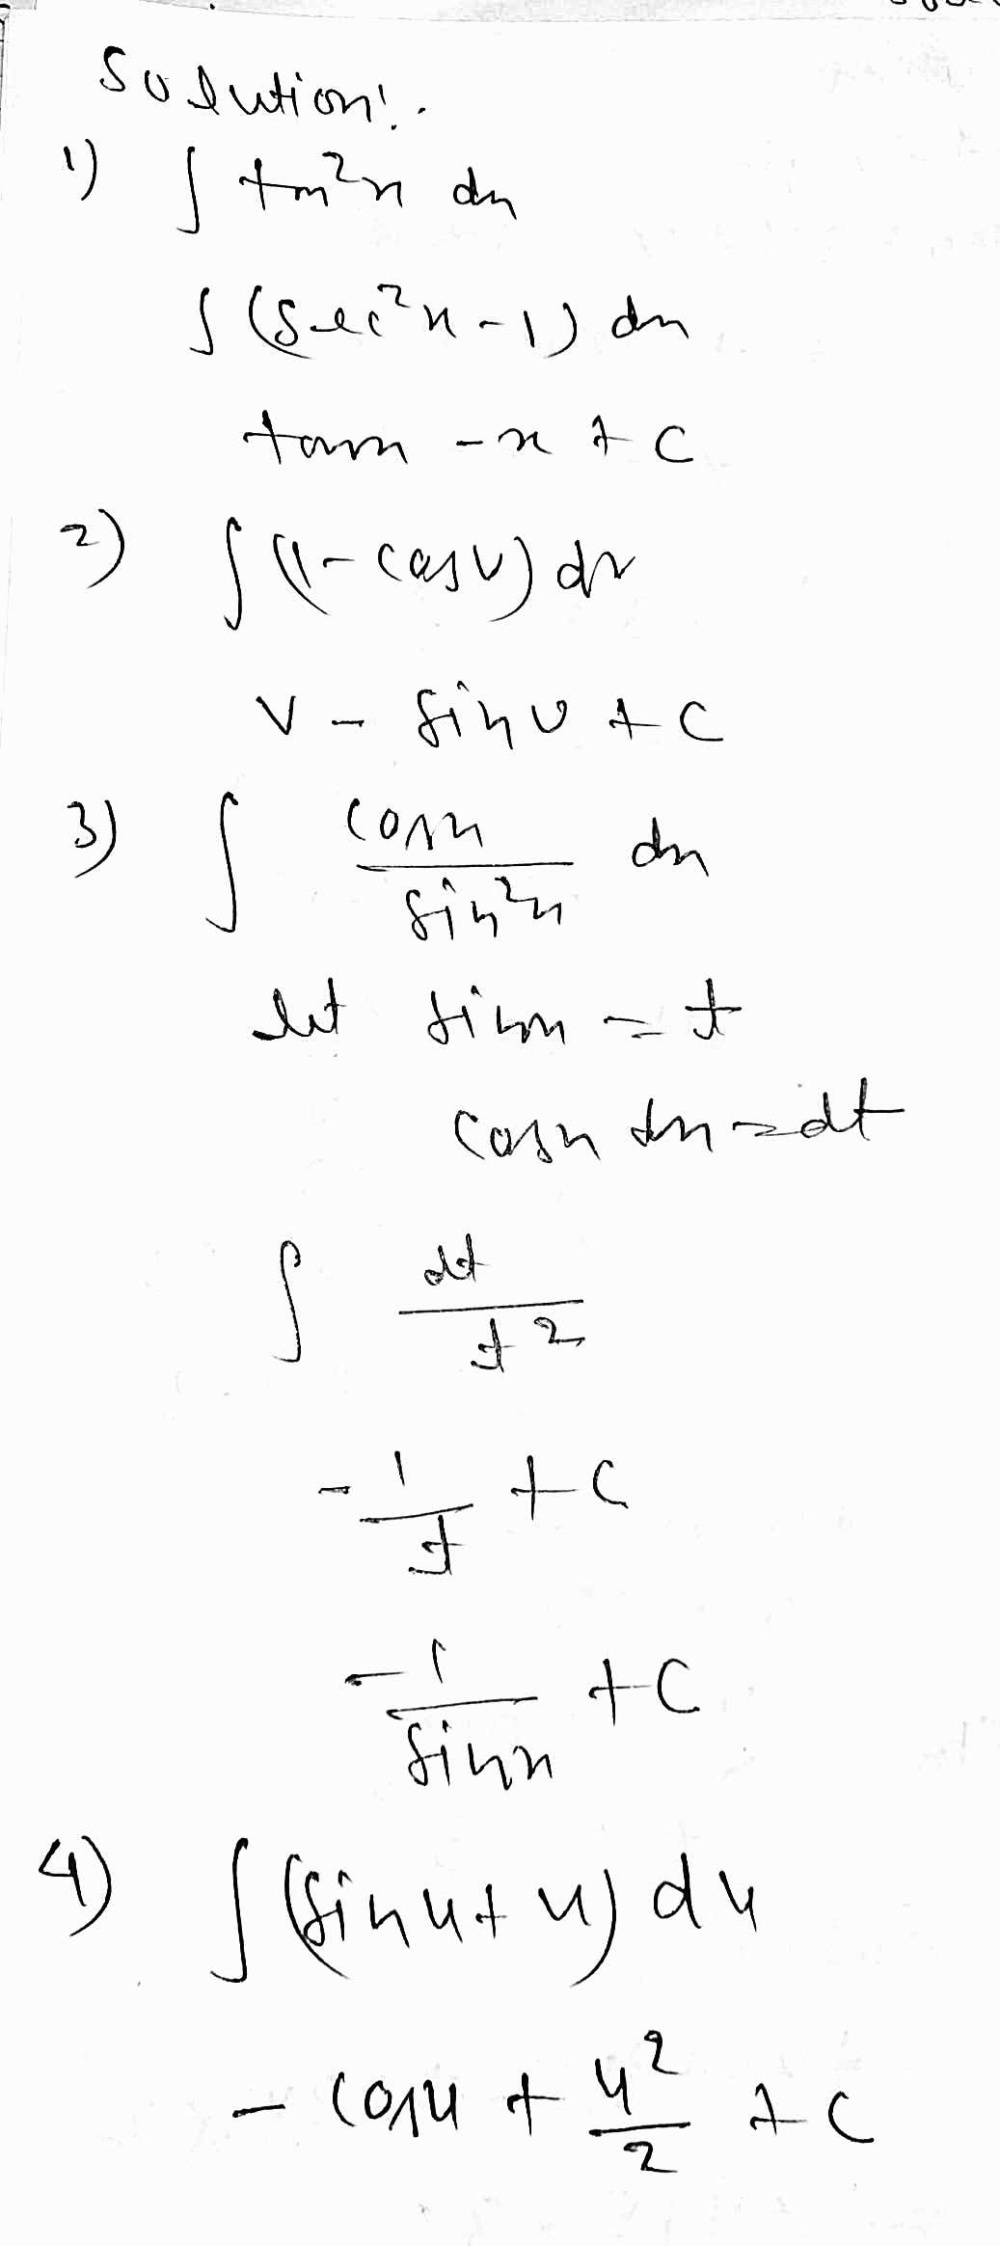 Solution:.
1) ∫ tan²x dx
∫ (sec²x - 1) dx
tanx - x + C
2) ∫ (1 - cosv) dv
v - sinv + C
3) ∫ cosx / sin²x dx
let sinx = t
cosx dx = dt
∫ dt / t²
- 1/t + C
- 1/sinx + C
4) ∫ (sinu + u) du
- cosu + u²/2 + C